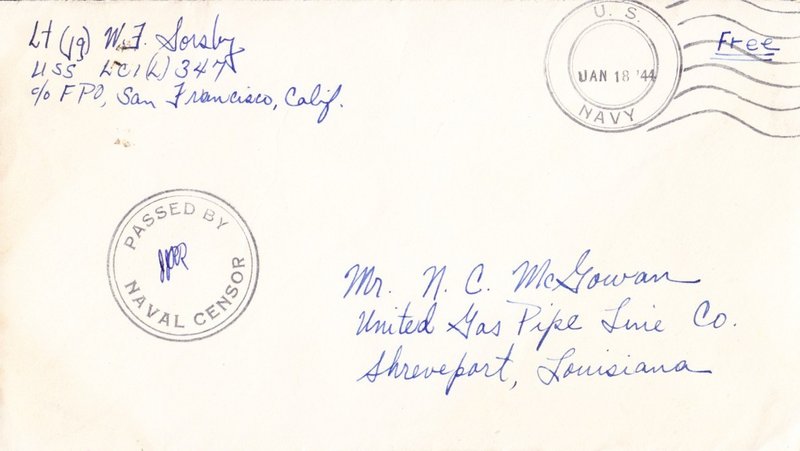 Lt (jg) W. F. Sorsby
USS LCI(L) 347
c/o FPO, San Francisco, Calif.
U. S.
JAN 18 '44
NAVY
Free
PASSED BY
NAVAL CENSOR
Mr. N. C. McGowan
United Gas Pipe Line Co.
Shreveport, Louisiana